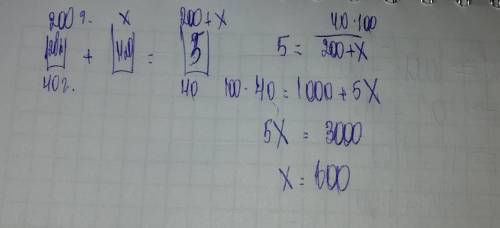 200 г. x 200+x
+ = 5
40г. 40
5 = 40·100 / 200+x
100·40 = 1000+5x
5x = 3000
x = 600